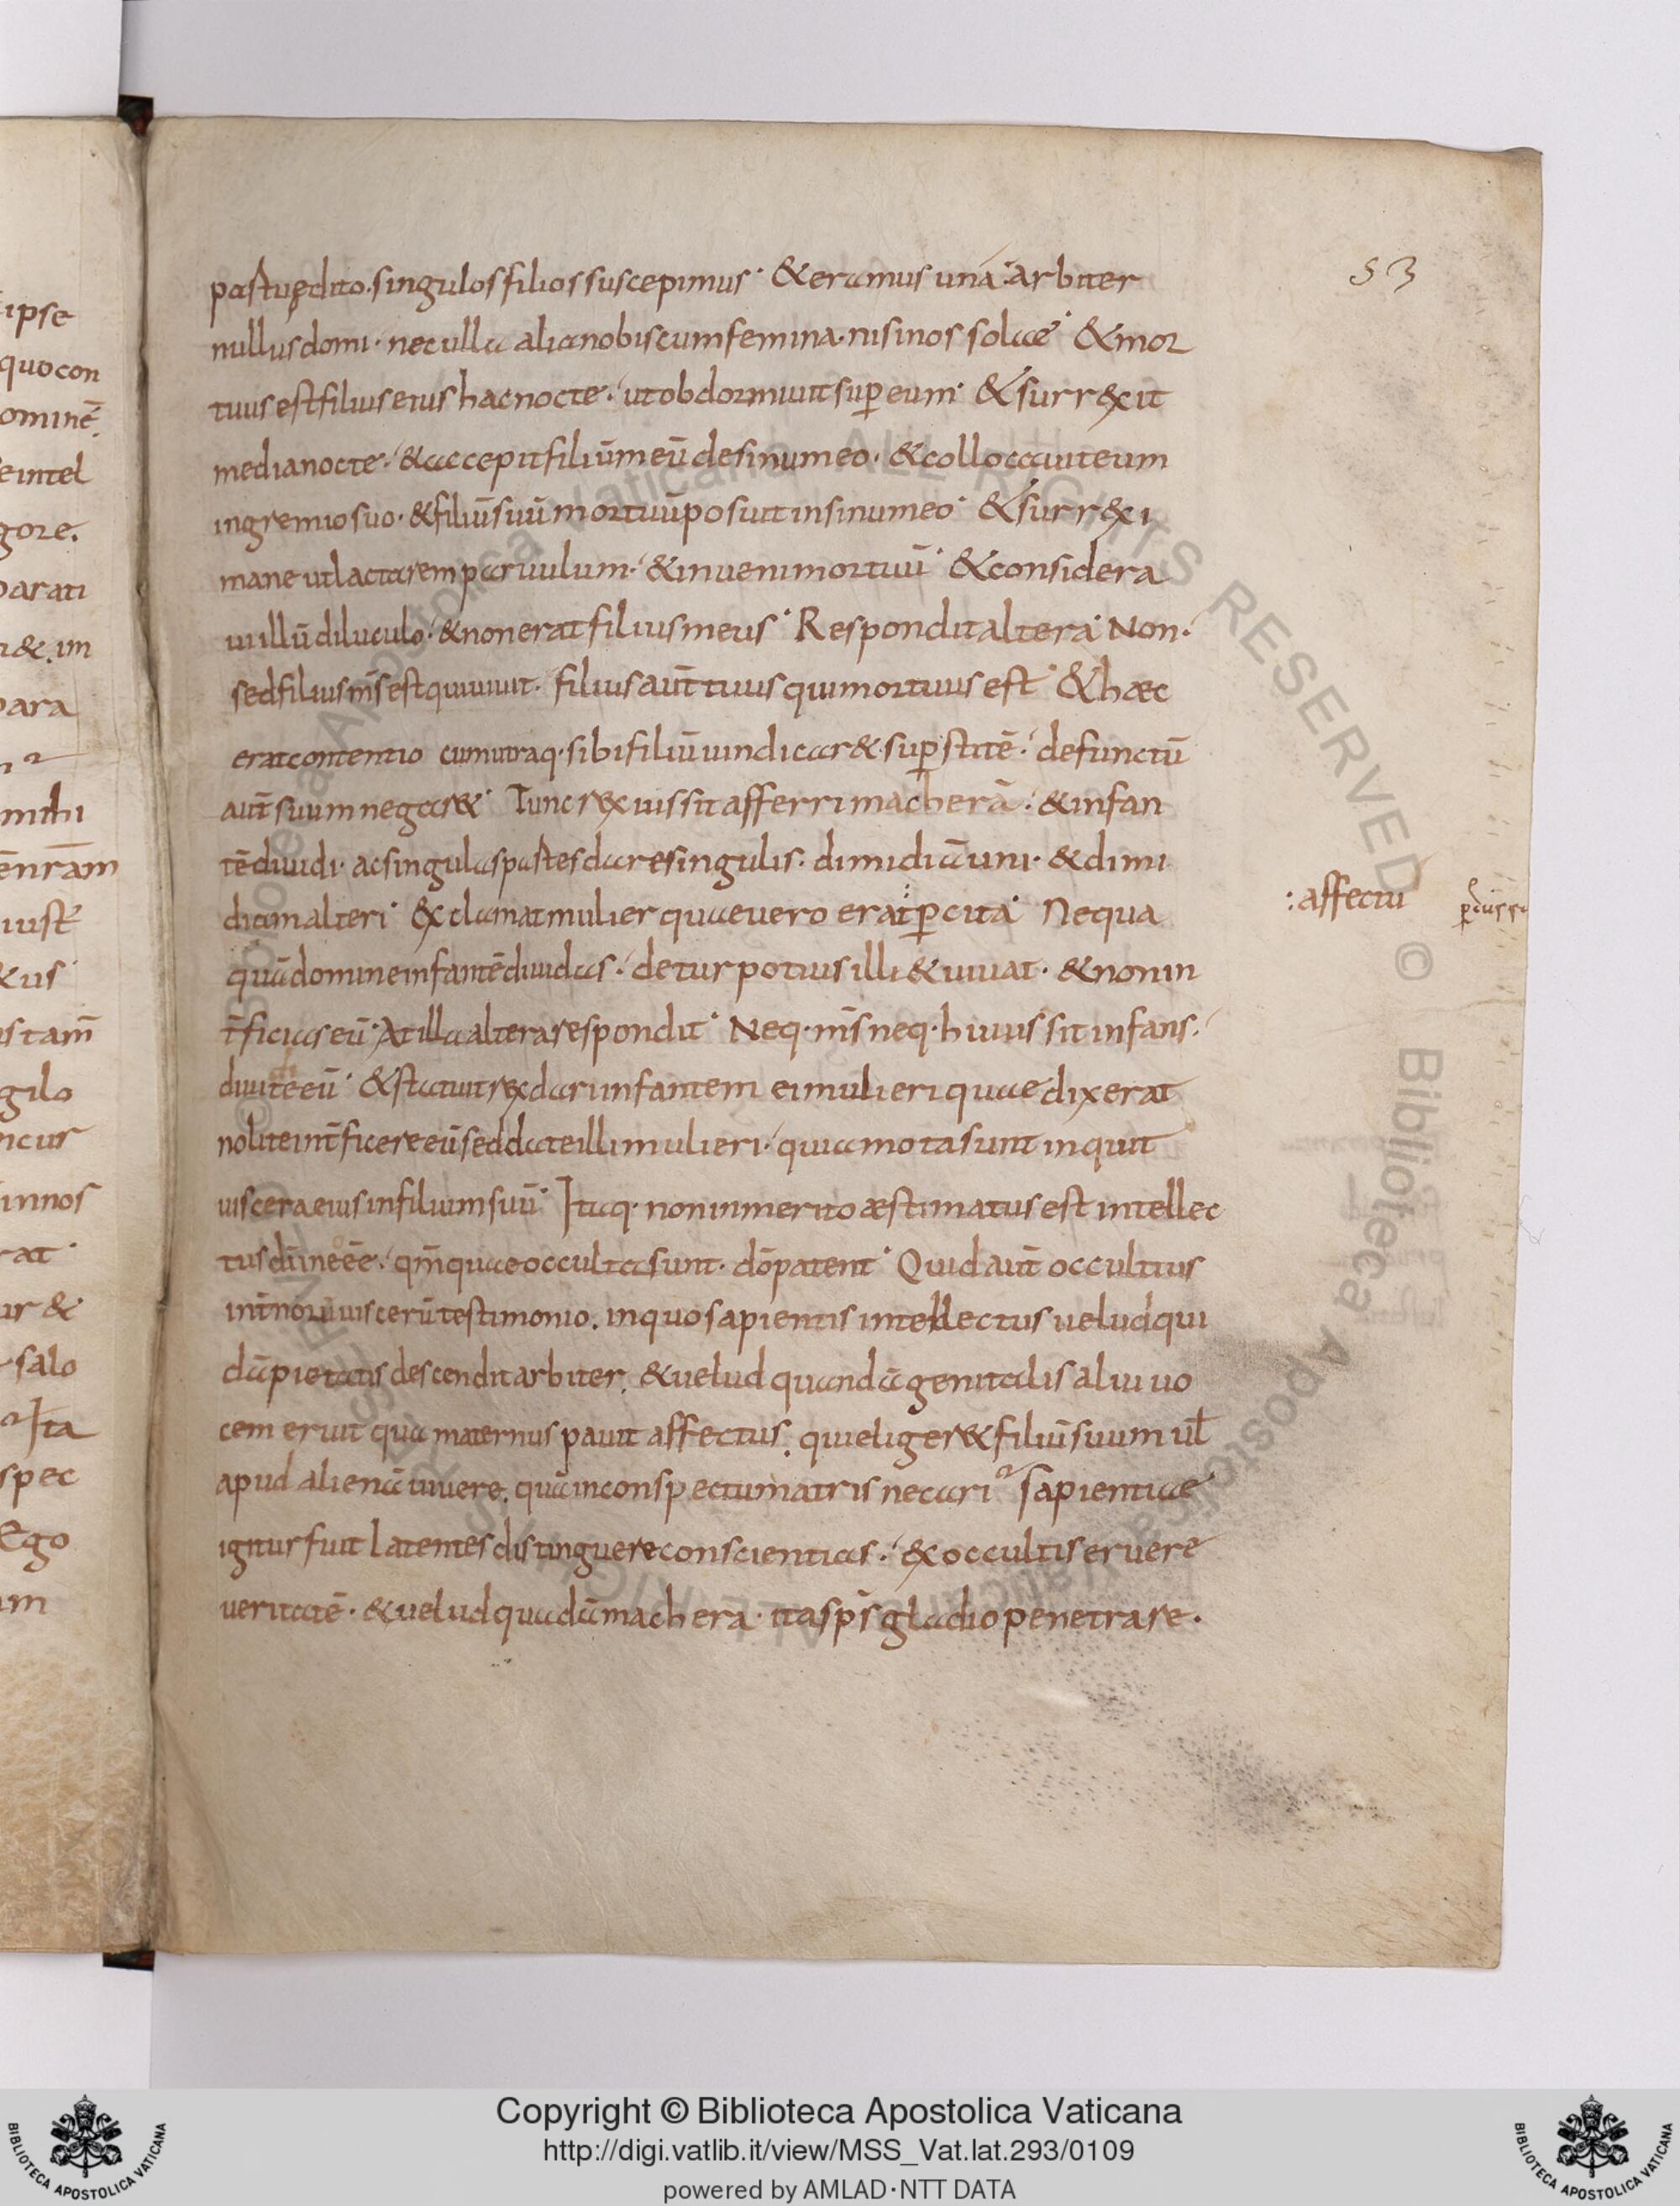 53
partu ędito. singulos filios suscepimus· & eramus una· arbiter
nullus domi· nec ulla alia nobiscum femina· nisi nos solae· & mor
tuus est filius eius hac nocte· ut obdormiuit sup̱ eum· & surrexit
media nocte· & accepit filiūmeū de sinu meo· & collocauit eum
in gremio suo· & filiū suū mortuū posuit in sinu meo· & surrexi
mane ut lactarem paruulum· & inueni mortuū· & considera
ui illū diluculo· & non erat filius meus· Respondit altera· Non·
sed filius m̄s est qui uiuit· filius aūt tuus qui mortuus est· & haec
erat contentio cum utraq· sibi filiū uindicar&· sup̱stitē· defunctū
aūt suum negar&· Tunc rex iussit afferri macherā· & infan
tē diuidi· ac singulas partes dare singulis· dimidiā uni· & dimi
diam alteri· Exclamat mulier quae uero erat p̱cita· Nequa
:affectu
quā domine infantē diuidas· detur potius illi & uiuat· & non in
t̄ficias eū· At illa altera respondit· Neq· m̄s neq· huius sit infans·
diuiditē eū· & statuit rex dari infantem ei mulieri quae dixerat
nolite int̄ficere eū sed date illi mulieri· quia mota sunt inquit
uiscera eius in filium suū· Itaq· non inmerito aestimatus est intellec
tus d̄i in eo ēē· qm̄ quae occulta sunt· dō patent· Quid aūt occultius
int̄norū uiscerū testimonio. in quo sapientis intellectus uelud qui
dā pietatis descendit arbiter. & uelud quandā genitalis alui uo
cem eruit qua maternus patuit affectus. qui eliger& filiū suum ul̄
apud alienā uiuere. quā in conspectu matris necari· sapientiae
igitur fuit latentes distinguere conscientias· ex occultis eruere
ueritatē· & uelud quadā machera· ita sp̄s gladio penetrare·
Copyright © Biblioteca Apostolica Vaticana
http://digi.vatlib.it/view/MSS_Vat.lat.293/0109
powered by AMLAD·NTT DATA